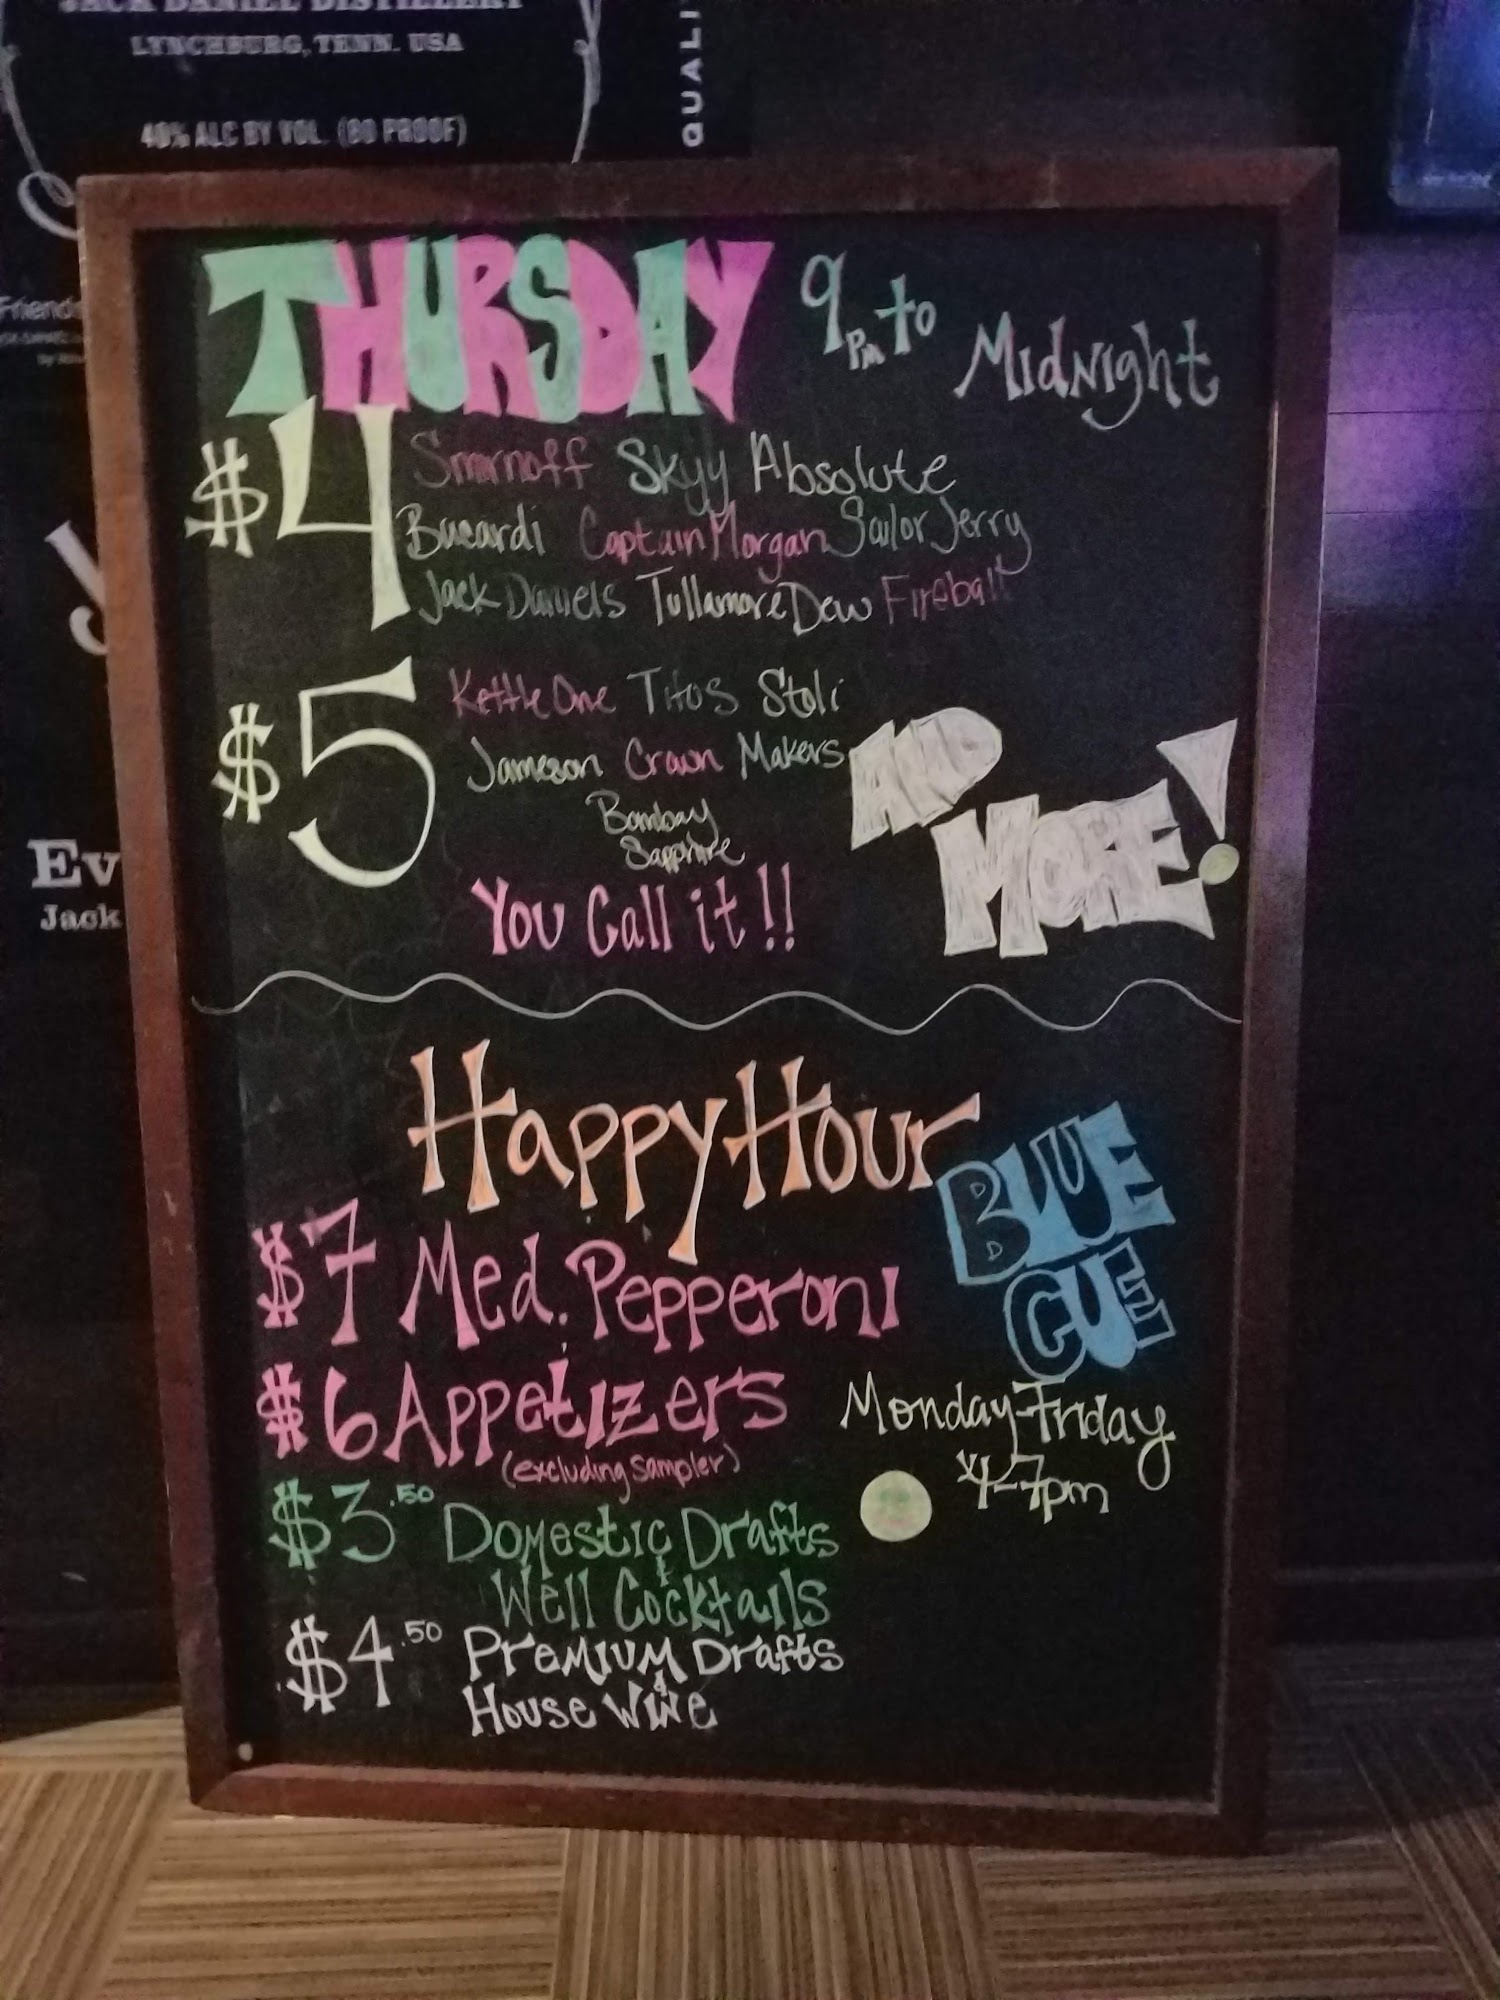 JACK DANIEL DISTILLERY
LYNCHBURG, TENN. USA
40% ALC BY VOL. (80 PROOF)
QUALI
Friends
Ev
Jack
THURSDAY 9PM to Midnight
$4 Smirnoff Skyy Absolute
Bucardi Captain Morgan Sailor Jerry
Jack Daniels Tullamore Dew Fireball
$5 Kettle One Titos Stoli
Jameson Crown Makers
Bombay
Sapphire
AND
MORE!
You Call it!!
Happy Hour
BLUE
CUE
$7 Med. Pepperoni
$6 Appetizers
(excluding sampler)
Monday-Friday
4-7pm
$3.50 Domestic Drafts
& Well Cocktails
$4.50 Premium Drafts
& House Wine